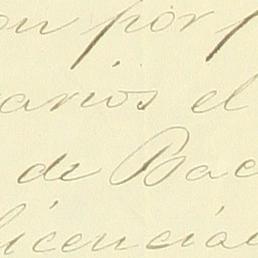 on por p
arios el
de Bac
licencia